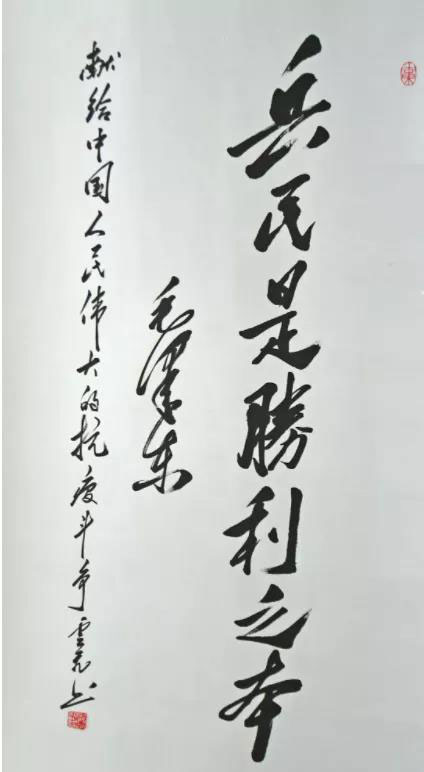 兵民是勝利之本
毛泽东
献给中国人民伟大的抗疫斗争